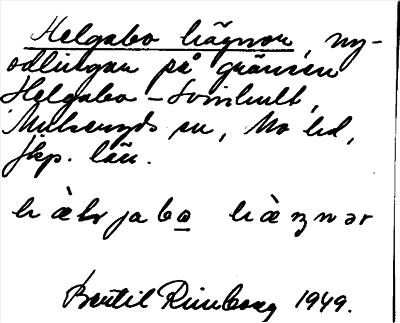 Helgabo hägnor, ny-
odlingar på gränsen
Helgabo - Svinhult,
Mulseryds sn, Mo hd,
Jkp. län.
hæ̀lɡabo hæ̀ŋnər
Bertil Rimborg 1949.